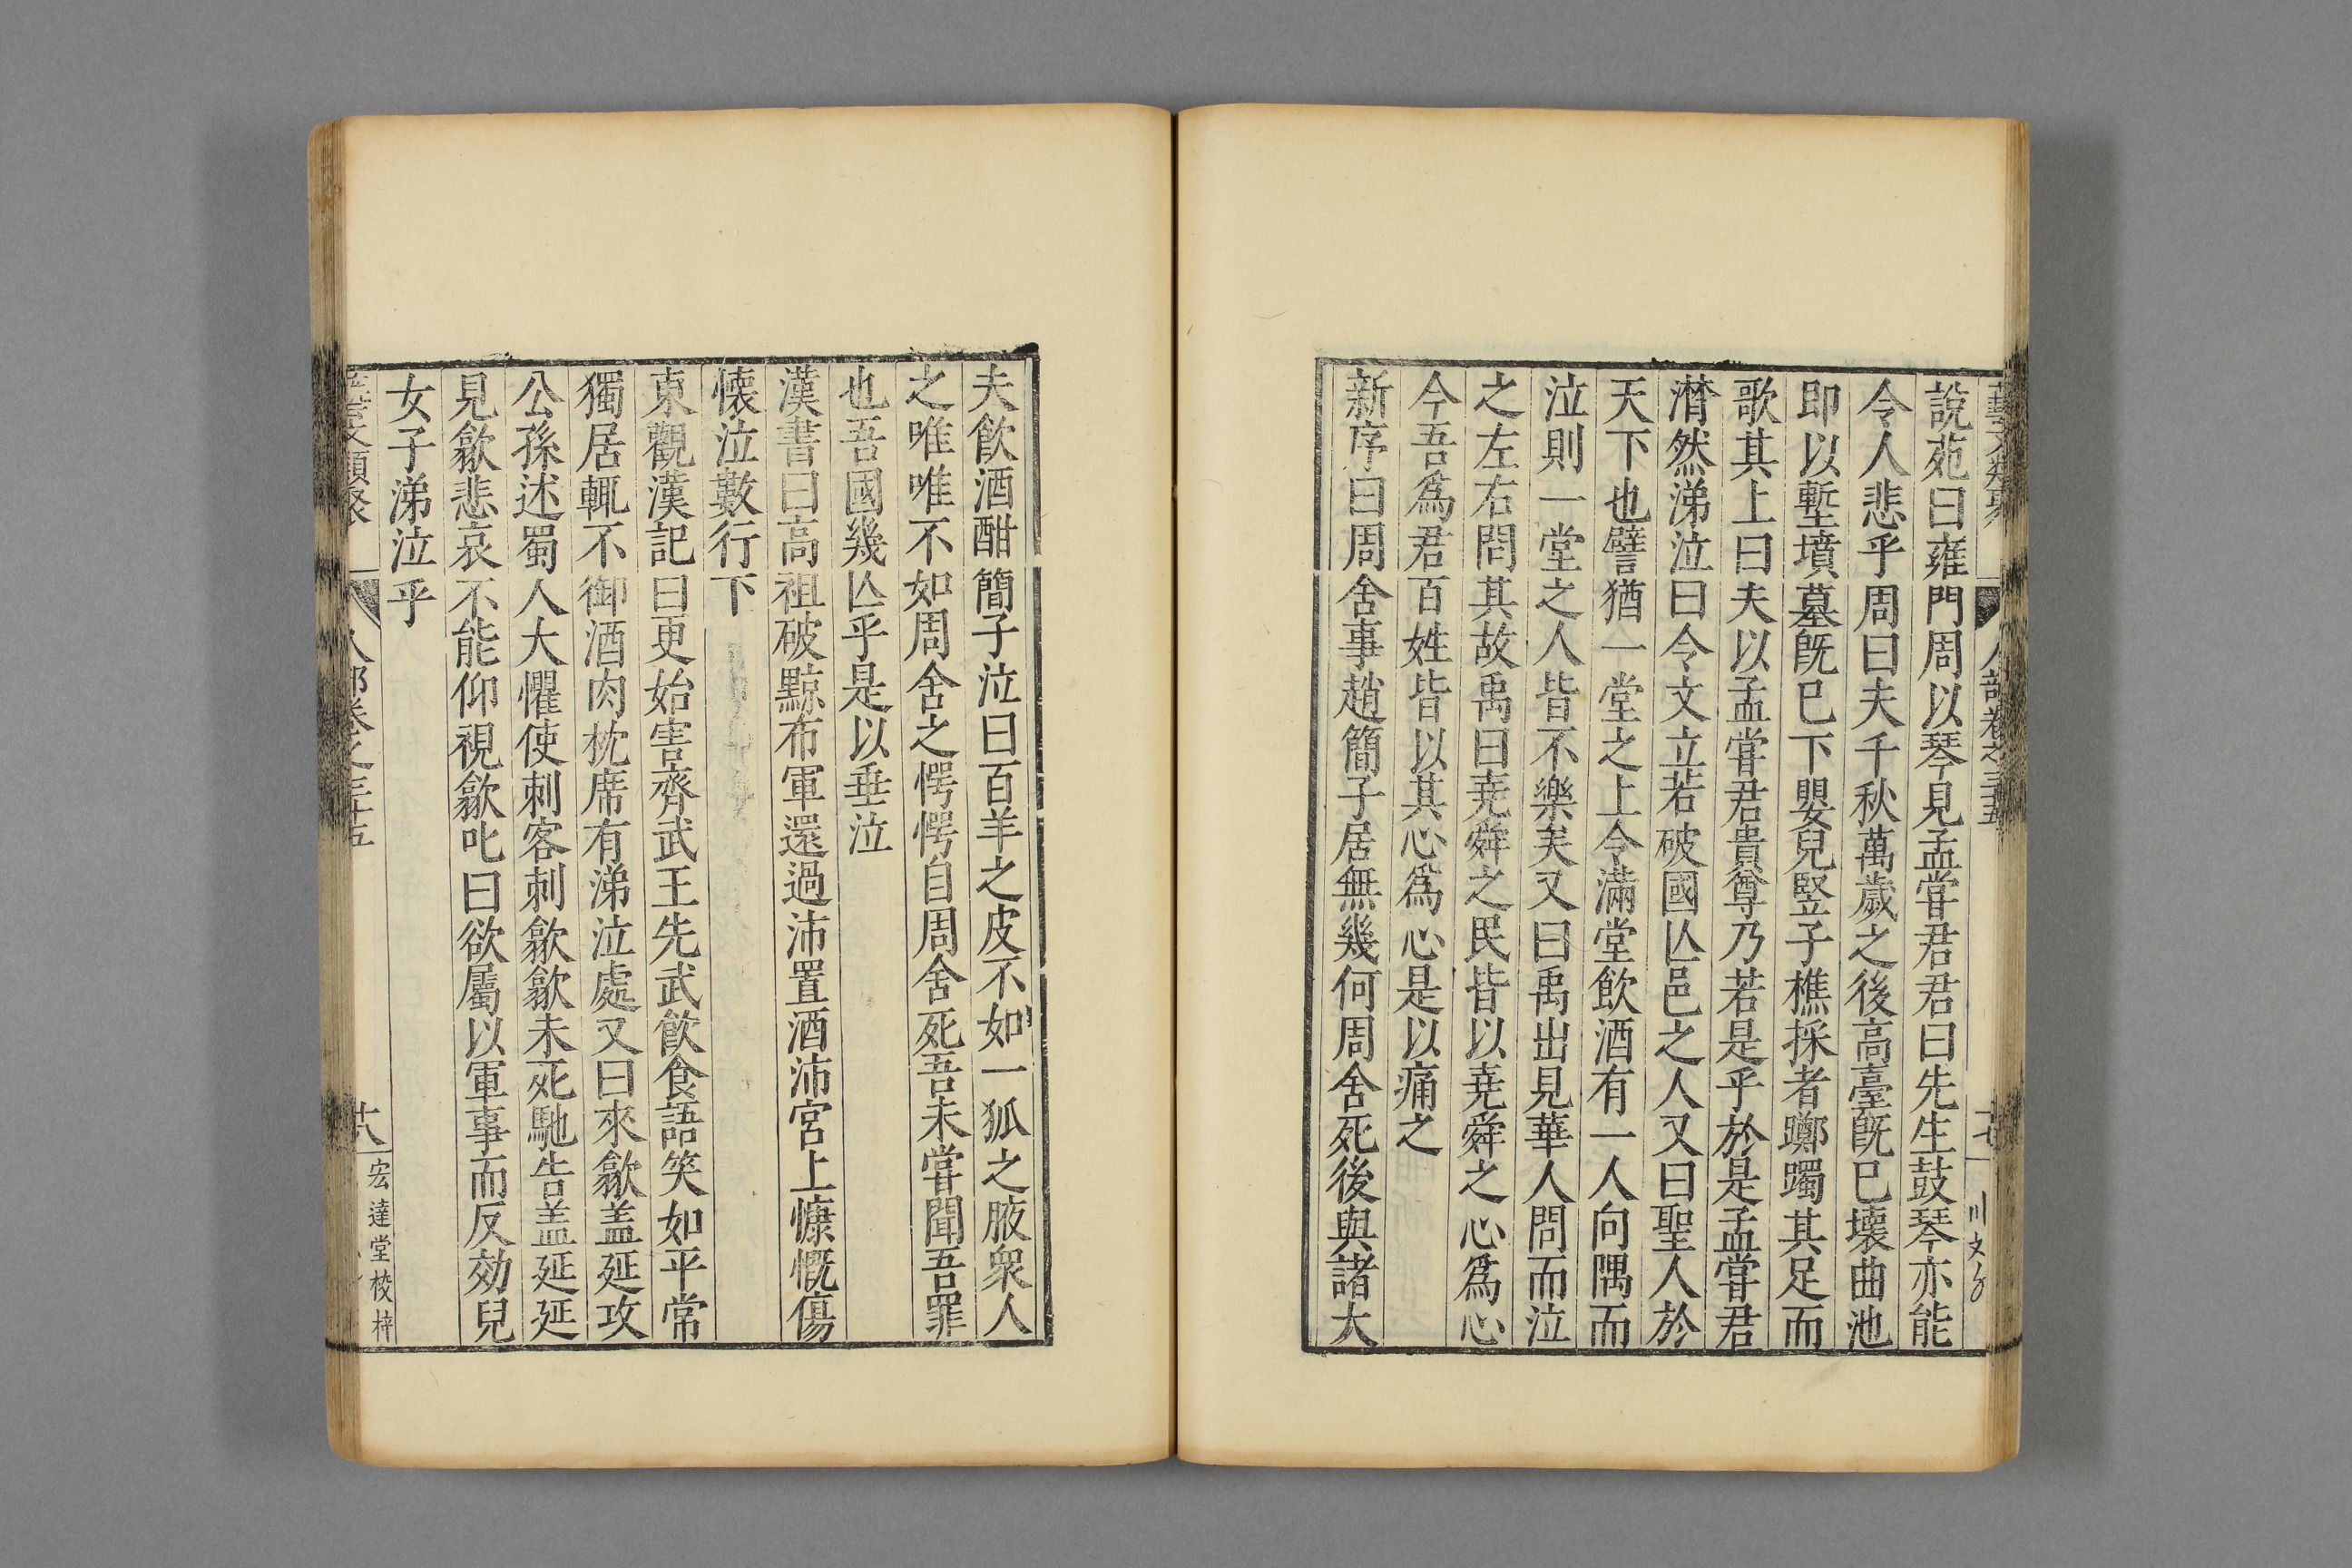 說苑曰雍門周以琴見孟甞君君曰先生鼓琴亦能
令人悲乎周曰夫千秋萬歲之後高臺旣已壊曲池
即以塹墳墓旣已下嬰兒竪子樵採者躑躅其足而
歌其上曰夫以孟甞君貴尊乃若是乎於是孟甞君
潸然涕泣曰令文立若破國亾邑之人又曰聖人於
天下也譬猶一堂之上今滿堂飲酒有一人向隅而
泣則一堂之人皆不樂矣又曰禹出見華人問而泣
之左右問其故禹曰堯舜之民皆以堯舜之心爲心
今吾爲君百姓皆以其心爲心是以痛之
新序曰周舍事趙簡子居無幾何周舍死後與諸大
夫飲酒酣簡子泣曰百羊之皮不如一狐之腋衆人
之唯唯不如周舍之愕愕自周舍死吾未甞聞吾罪
也吾國幾亾乎是以垂泣
漢書曰高祖破黥布軍還過沛置酒沛宮上慷慨傷
懐泣數行下
東觀漢記曰更始害齊武王先武飲食語笑如平常
獨居輒不御酒肉枕席有涕泣處又曰來歙盖延攻
公孫述蜀人大懼使刺客刺歙歙未死馳告盖延延
見歙悲哀不能仰視歙叱曰欲屬以軍事而反効兒
女子涕泣乎
人部卷之三十五
十八
宏達堂校梓